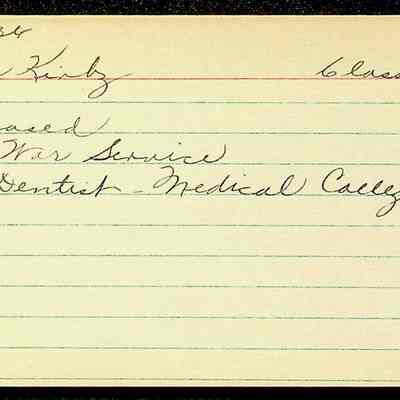 Kirby Class
War Service
Dentist - Medical Colleg